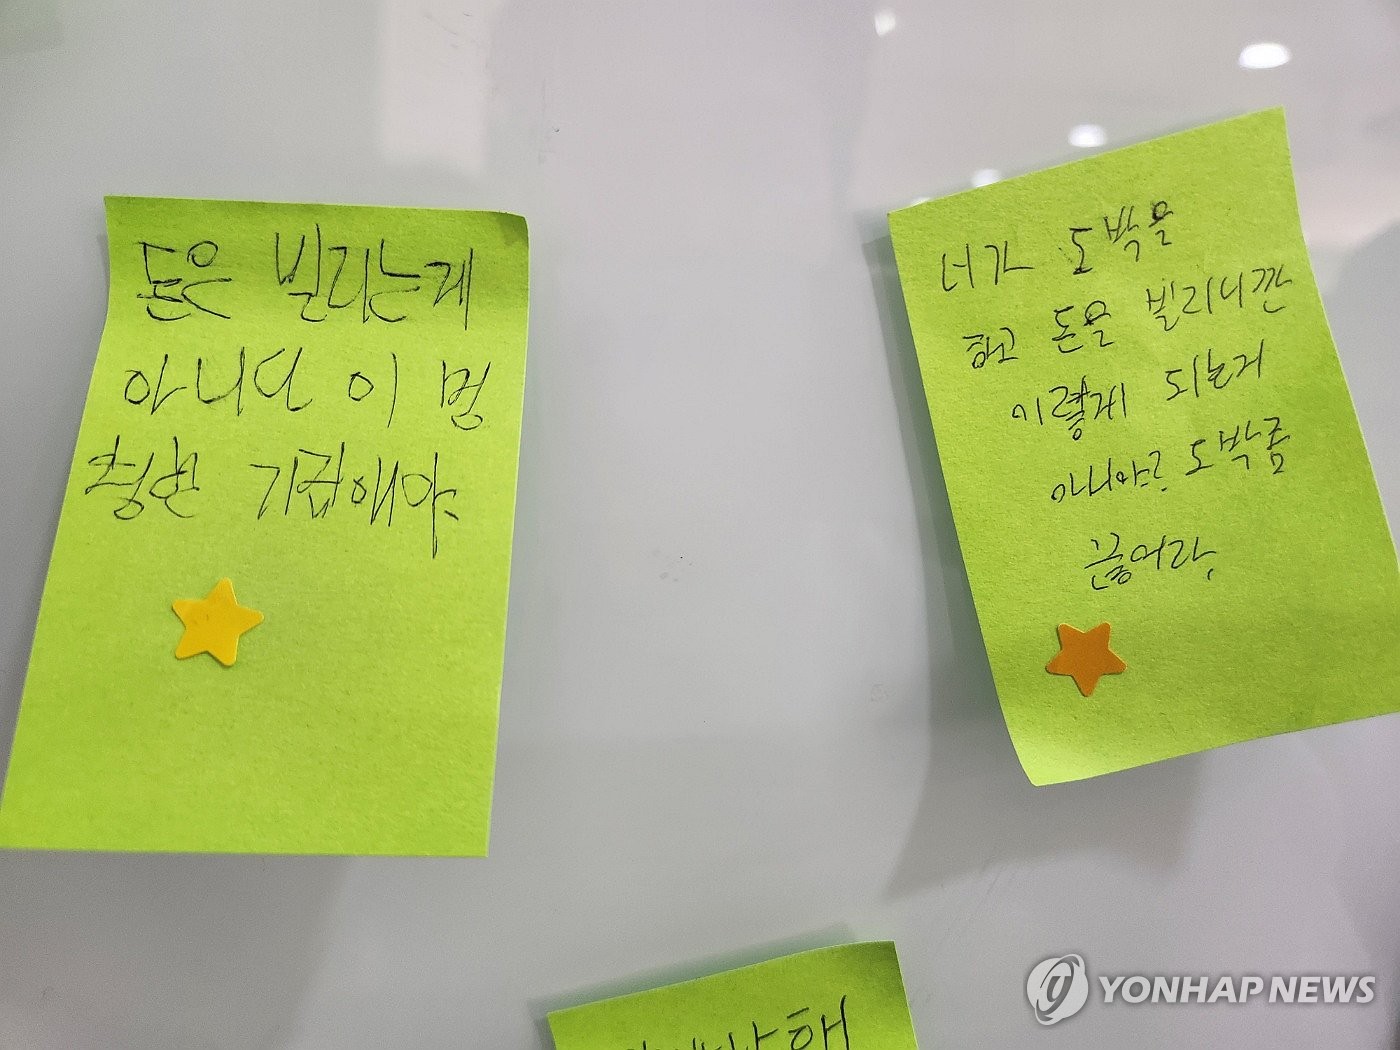 돈은 빌리는게
아니다 이 멍
청한 기집애야.
너가 도박을
하고 돈을 빌리니깐
이렇게 되는거
아니야? 도박좀
끊어라.
해
YONHAP NEWS